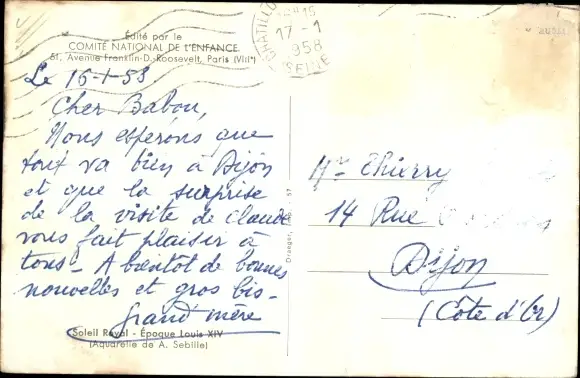 Édité par le
COMITÉ NATIONAL DE L'ENFANCE
51, Avenue Franklin-D. Roosevelt, Paris (VIIIe)
17-1
1958
SEINE
Le 16-1-58
Cher Babou,
Nous espérons que
tout va bien à Dijon
et que la surprise
de la visite de Claude
vous fait plaisir à
tous - A bientôt de bonnes
nouvelles et gros bis-
grand mère
Soleil Royal - Époque Louis XIV
(Aquarelle de A. Sebille)
Draeger, Imp. 57
Mr Thierry
14 Rue
Dijon
(Côte d'Or)